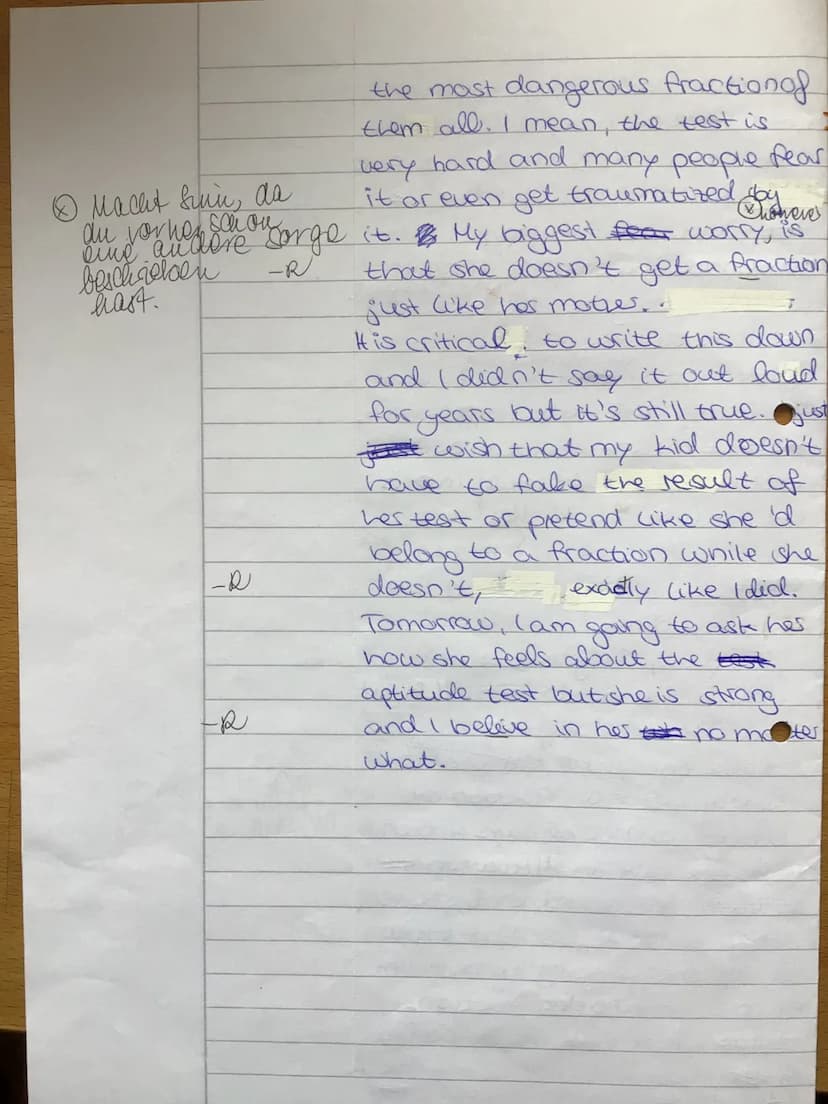 the most dangerous fraction of
them all. I mean, the test is
very hard and many people fear
it or even get traumatized by
ⓧ however
it. My biggest fear worry, is
that she doesn't get a fraction
just like her mother.
It is critical to write this down
and I didn't say it out loud
for years but it's still true. just
just wish that my kid doesn't
have to fake the result of
her test or pretend like she'd
belong to a fraction while she
doesn't, exactly like I did.
Tomorrow, I am going to ask her
how she feels about the test
aptitude test but she is strong
and I beleive in her no matter
what.
ⓧ Macht Sinn, da
du vorher schon
eine andere Sorge
beschrieben -R
hast.
-R
-R